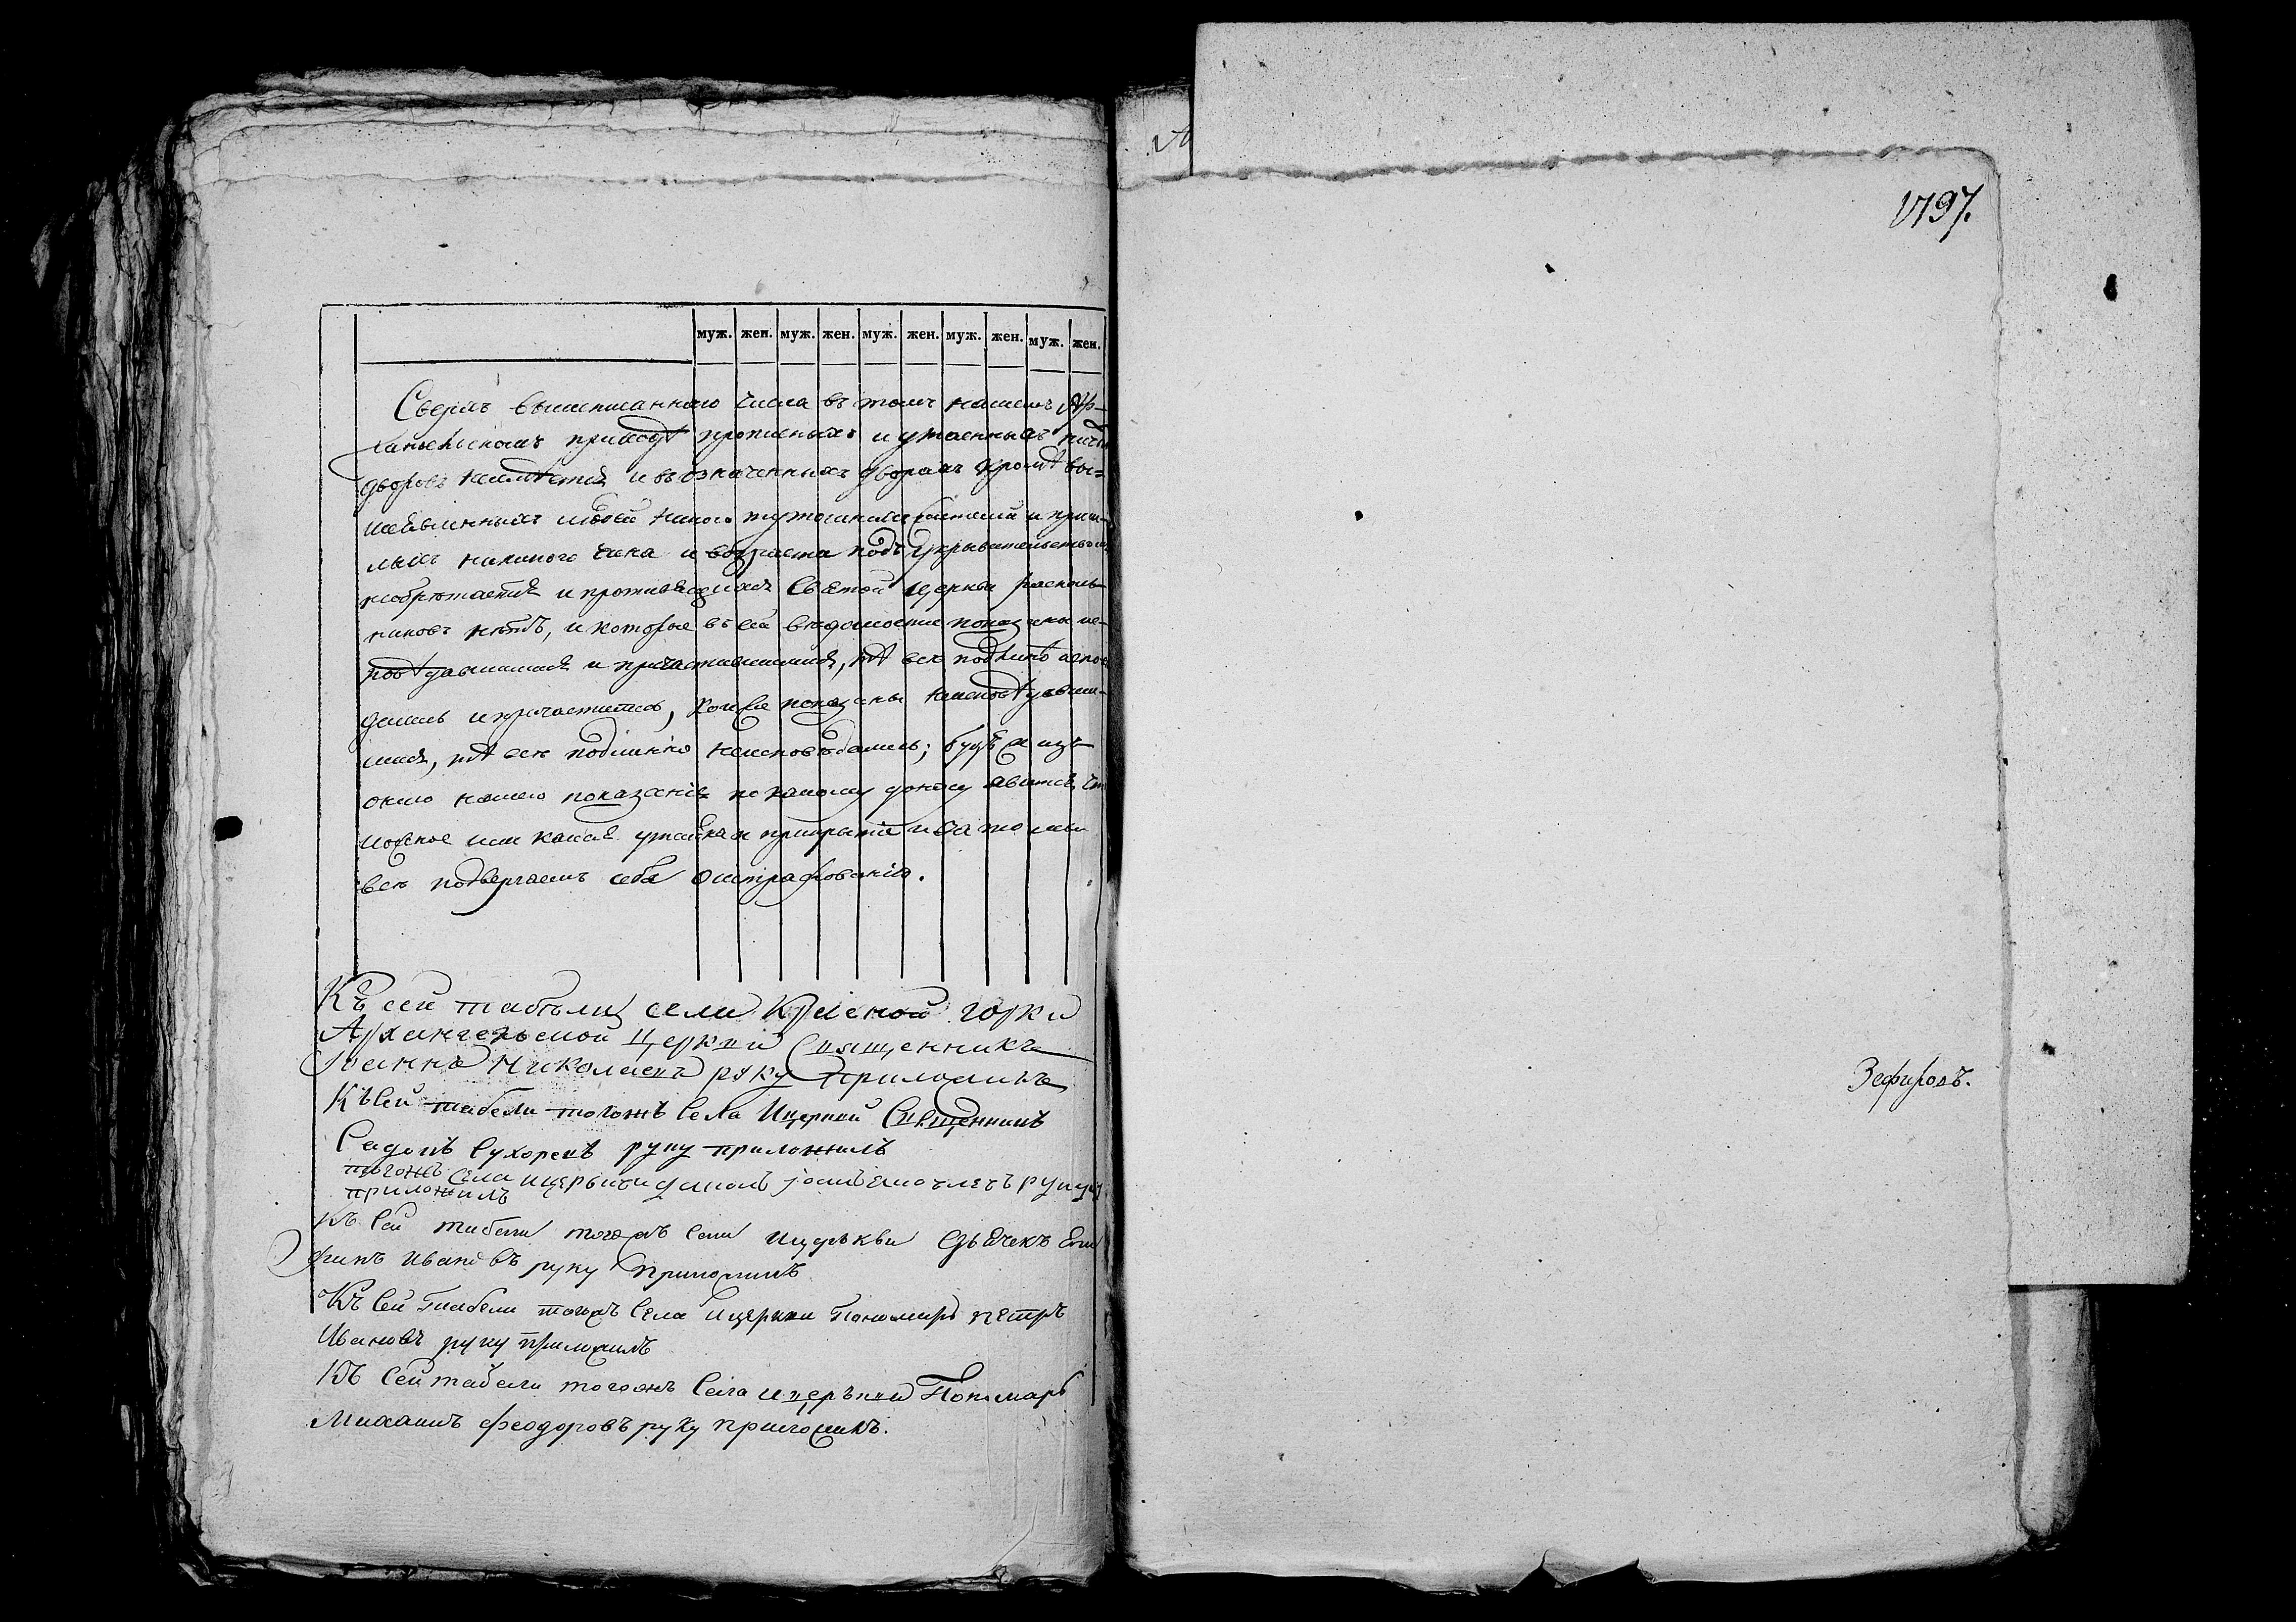 муж. жен. муж. жен. муж. жен. муж. жен. муж. жен.
Сверхъ вышеписаннаго числа въ томъ нашемъ Ар-
хангельскомъ приходѣ прописныхъ и утаенныхъ
дворовъ неимѣется и въ означенныхъ дворахъ кромѣ вы-
шеявленныхъ людей никого тутошнихъ жителей и приш-
лыхъ никакого чина и возраста подъ укрывательствомъ
необрѣтается и противящихся Святой церкви расколь-
никовъ нѣтъ, и которые въ сей вѣдомости показаны ис-
повѣдавшимися и причастившимися, тѣ всѣ подлинно испове
дались и причастились, кои же показаны неисповѣдавши-
мися, тѣ всѣ подлинно неисповѣдались; будѣ же изъ
онаго нашего показанія по какому доносу явится что
ложное или какая утайка и прикрытіе и за то мы
всѣ подвергаемъ себя оштрафованію.
Къ сей табѣли села Красной горки
Архангельской Церкви Священникъ
Іоаннъ Николаевъ руку приложилъ
Къ сей табели тогожъ села и церкви Священникъ
Сухоревъ руку приложилъ
тогожъ села и церьквы руку
приложилъ
Къ сей табели тогожъ села и церкви дьячекъ
Ивановъ руку приложилъ
Къ сей табели тогожъ села и церкви Пономарь Петръ
Ивановъ руку приложилъ
Къ сей табели тогожъ села и церькви Пономарь
Михаилъ Феодоровъ руку приложилъ.
1797.
Зефировъ.